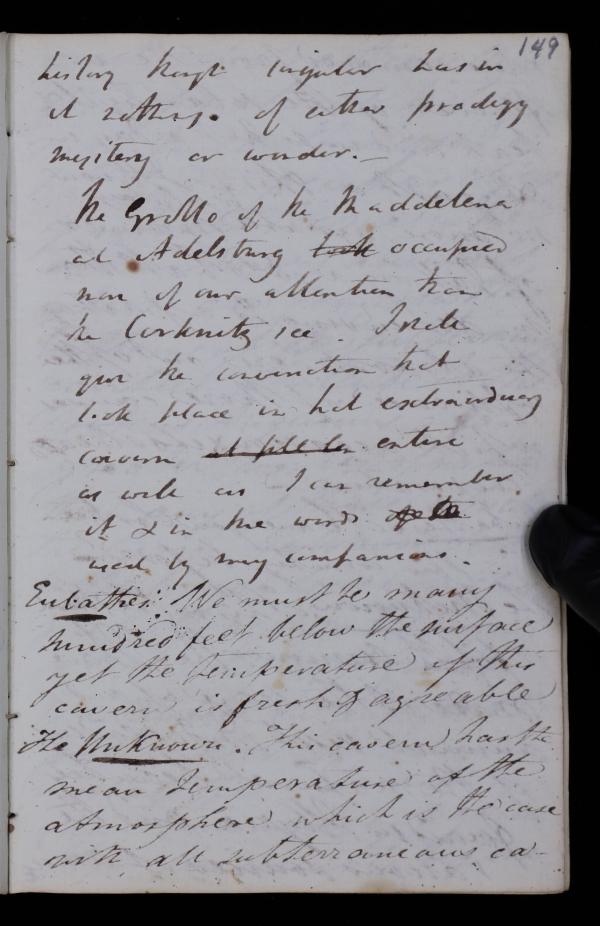 149
history though singular has in
it nothing of either prodigy
mystery or wonder. –
The Grotto of the Maddelena
at Adelsburg took occupied
more of our attention than
the Cirknitz see. I shall
give the conversation that
took place in that extraordinary
cavern entire
as well as I can remember
it & in the words
used by my companions.
Eubathes. We must be many
hundred feet below the surface
yet the temperature of this
cavern is fresh & agreeable
The Unknown. This cavern has the
mean temperature of the
atmosphere which is the case
with all subterraneous ca-